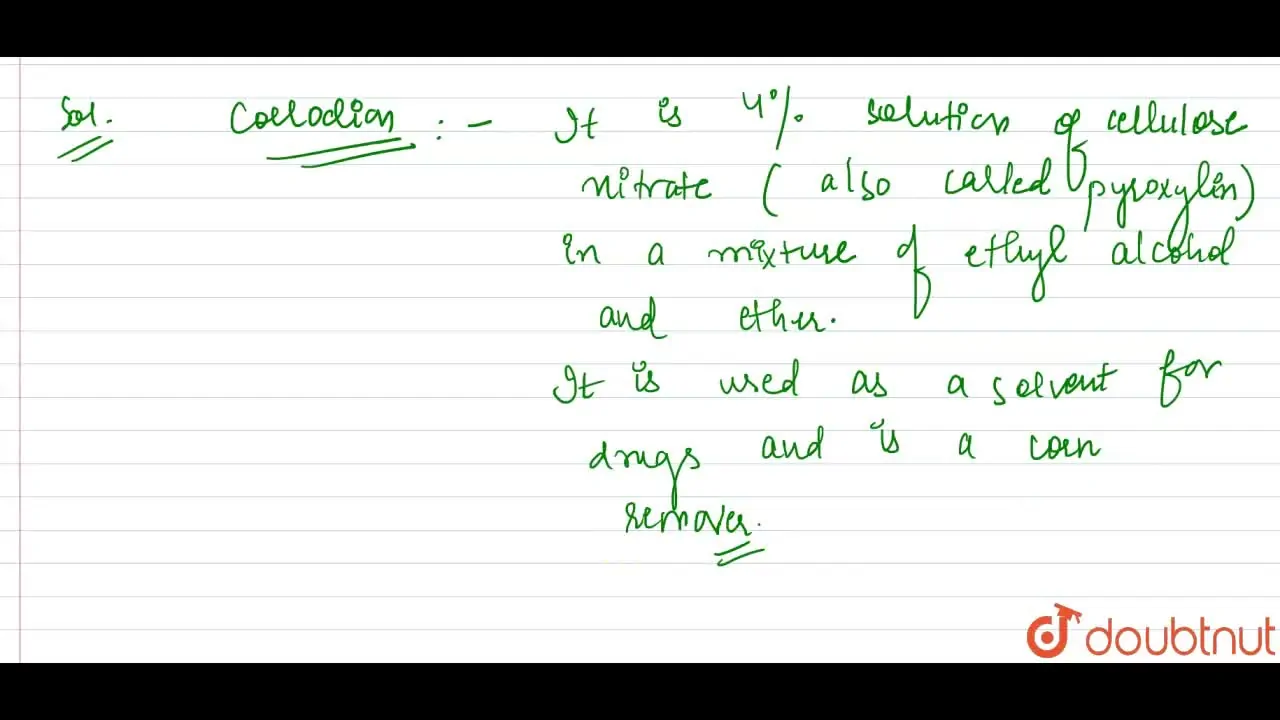 Sol. Collodian :- It is 4% solution of cellulose
nitrate ( also called pyroxylin)
in a mixture of ethyl alcohol
and ether.
It is used as a solvent for
drugs and is a corn
remover.
doubtnut